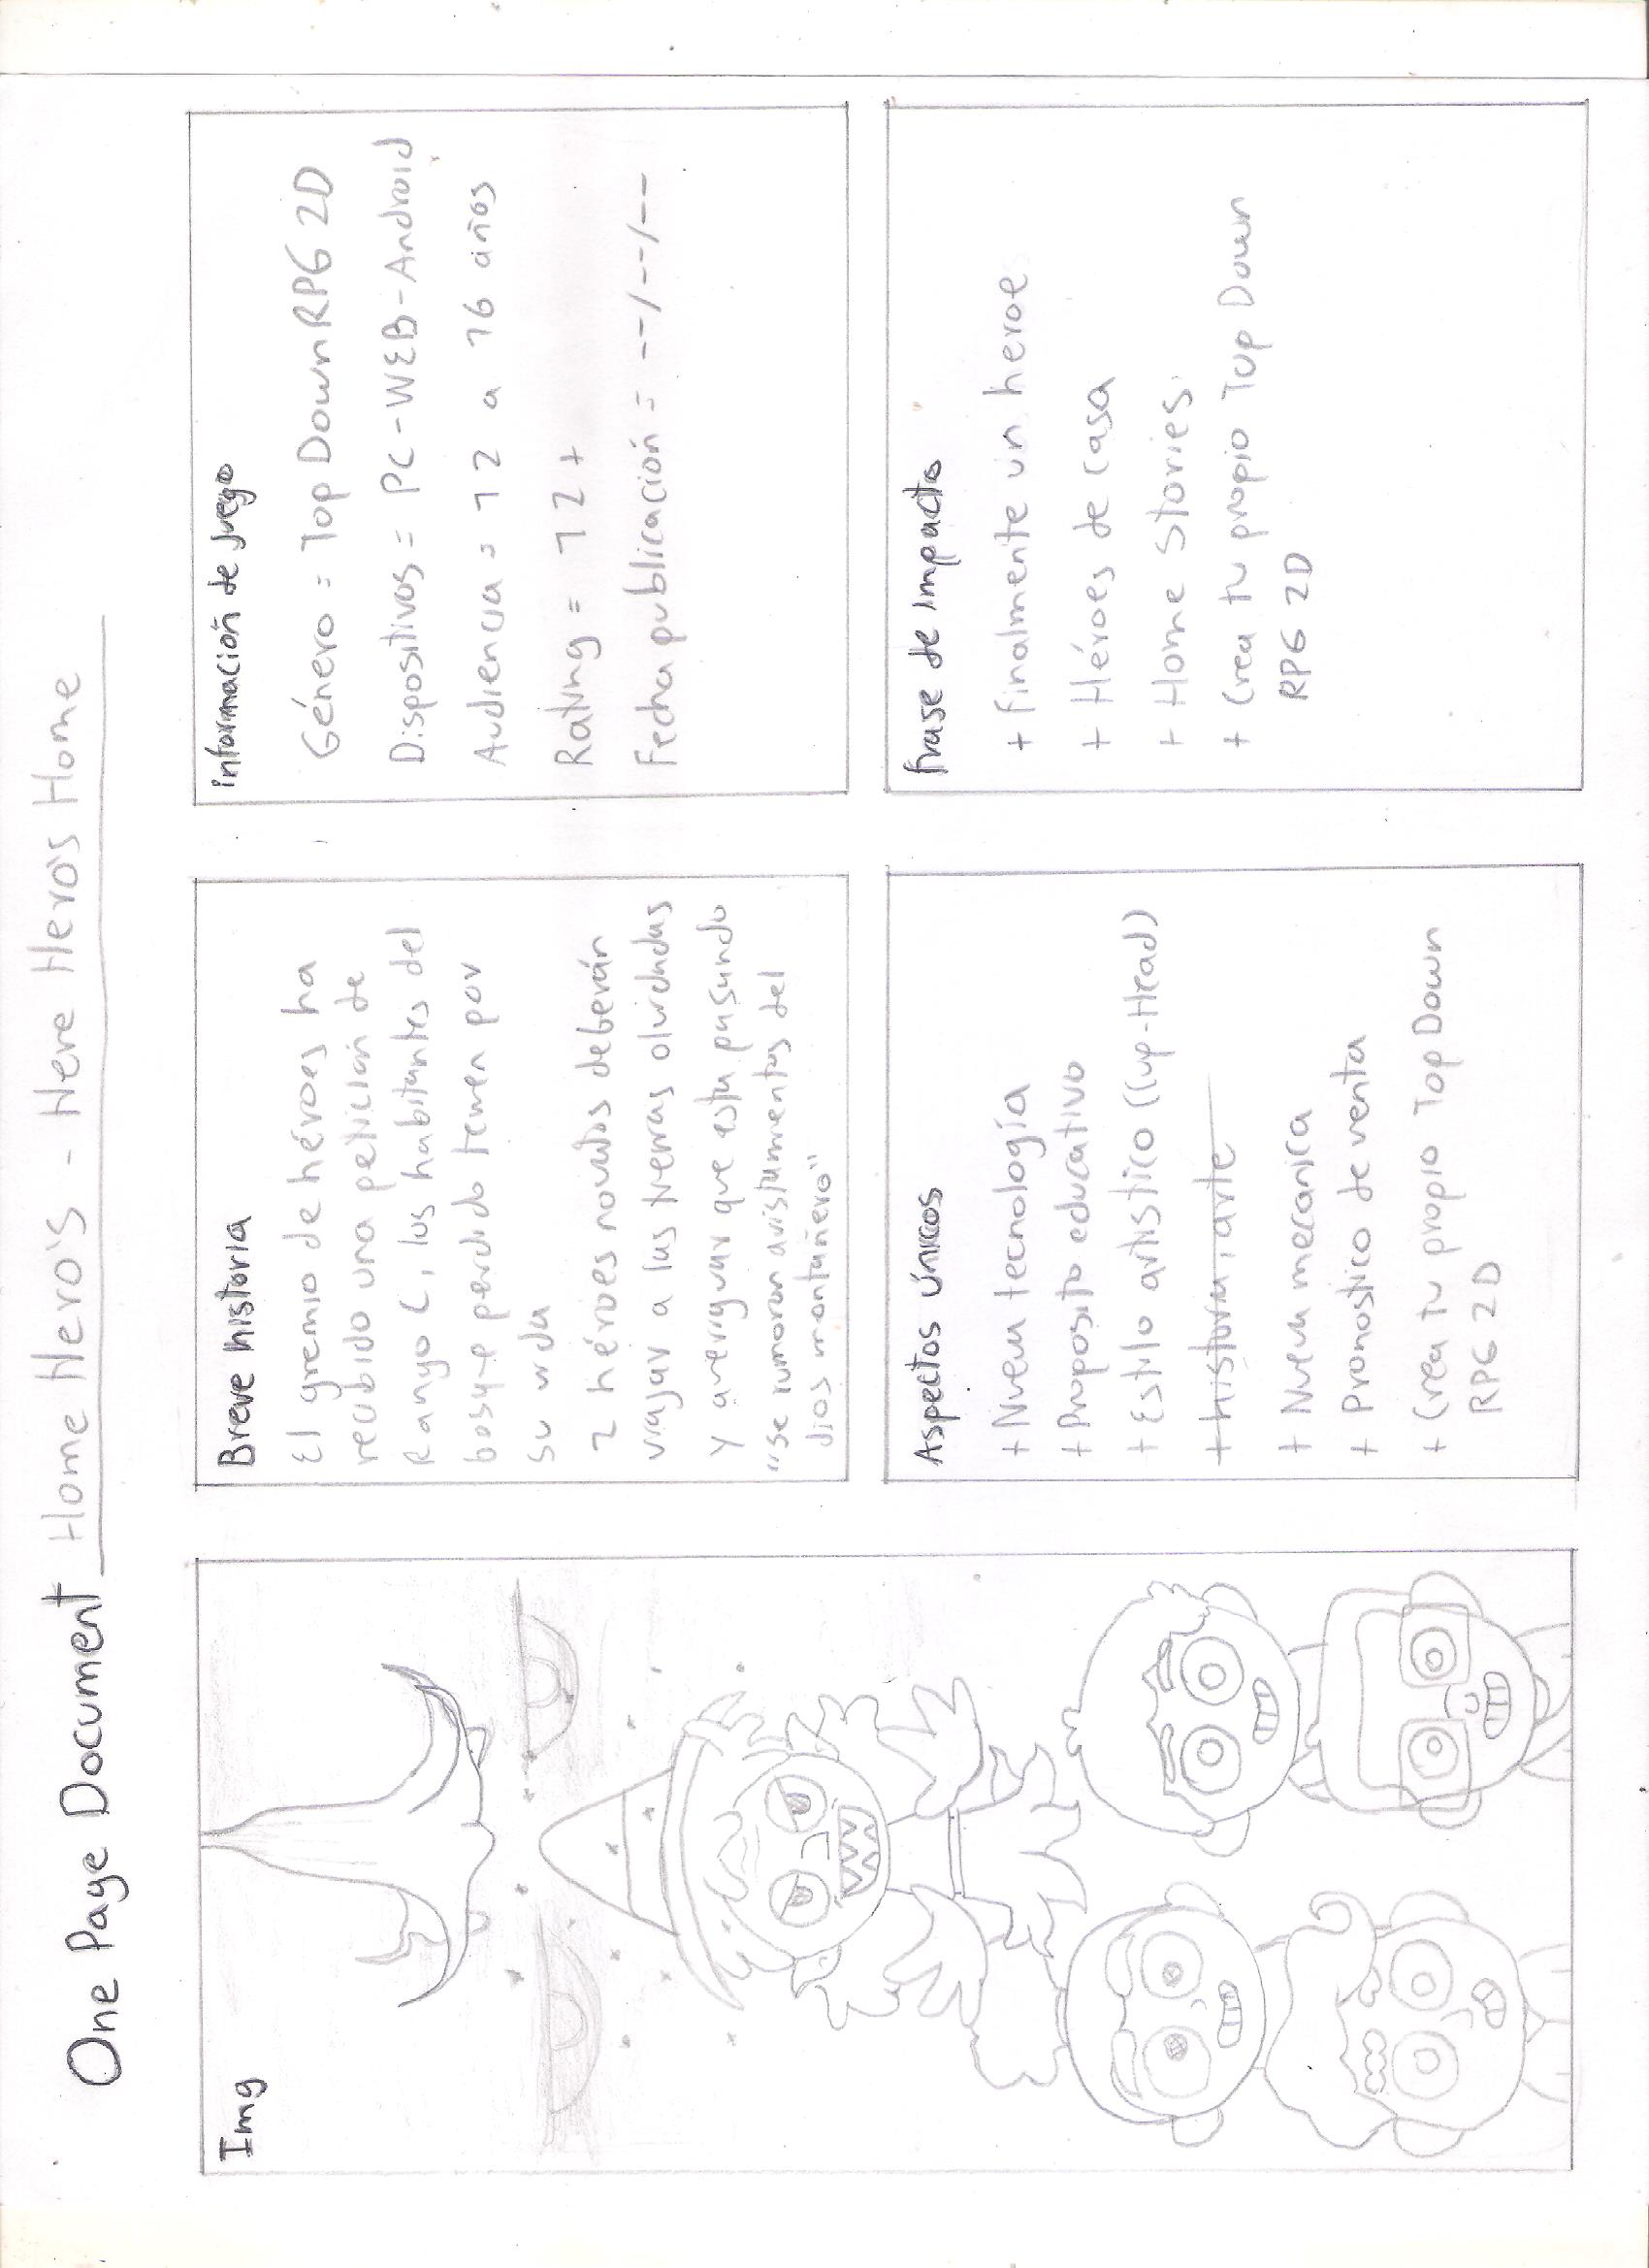 One Page Document Home Hero's - Here Hero's Home
Img
Breve historia
El gremio de héroes ha
recibido una petición de
Rango C, los habitantes del
bosque perdido temen por
su vida
2 héroes novatos deberán
viajar a las tierras olvidadas
y averiguar que esta pasando
"se rumoran avistamientos del
dios montañero"
información de juego
Género = Top Down RPG 2D
Dispositivos = PC-WEB-Android
Audiencia = 12 a 16 años
Rating = 12+
Fecha publicación = --/--/--
Aspectos únicos
+ Nueva tecnología
+ Proposito educativo
+ Estilo artistico (Cup-Head)
+ historia, arte
+ Nueva mecanica
+ Pronostico de venta
+ Crea tu propio Top Down
RPG 2D
frase de impacto
+ finalmente un heroe
+ Héroes de casa
+ Home Stories
+ Crea tu propio Top Down
RPG 2D